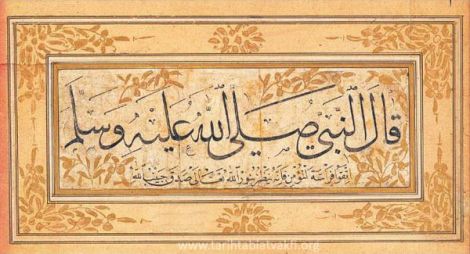 قال النبي صلى الله عليه وسلم
اتقوا فراسة المؤمن فإنه ينظر بنور الله تعالى صدق حبيب الله
www.tarihtabiatvakfi.org